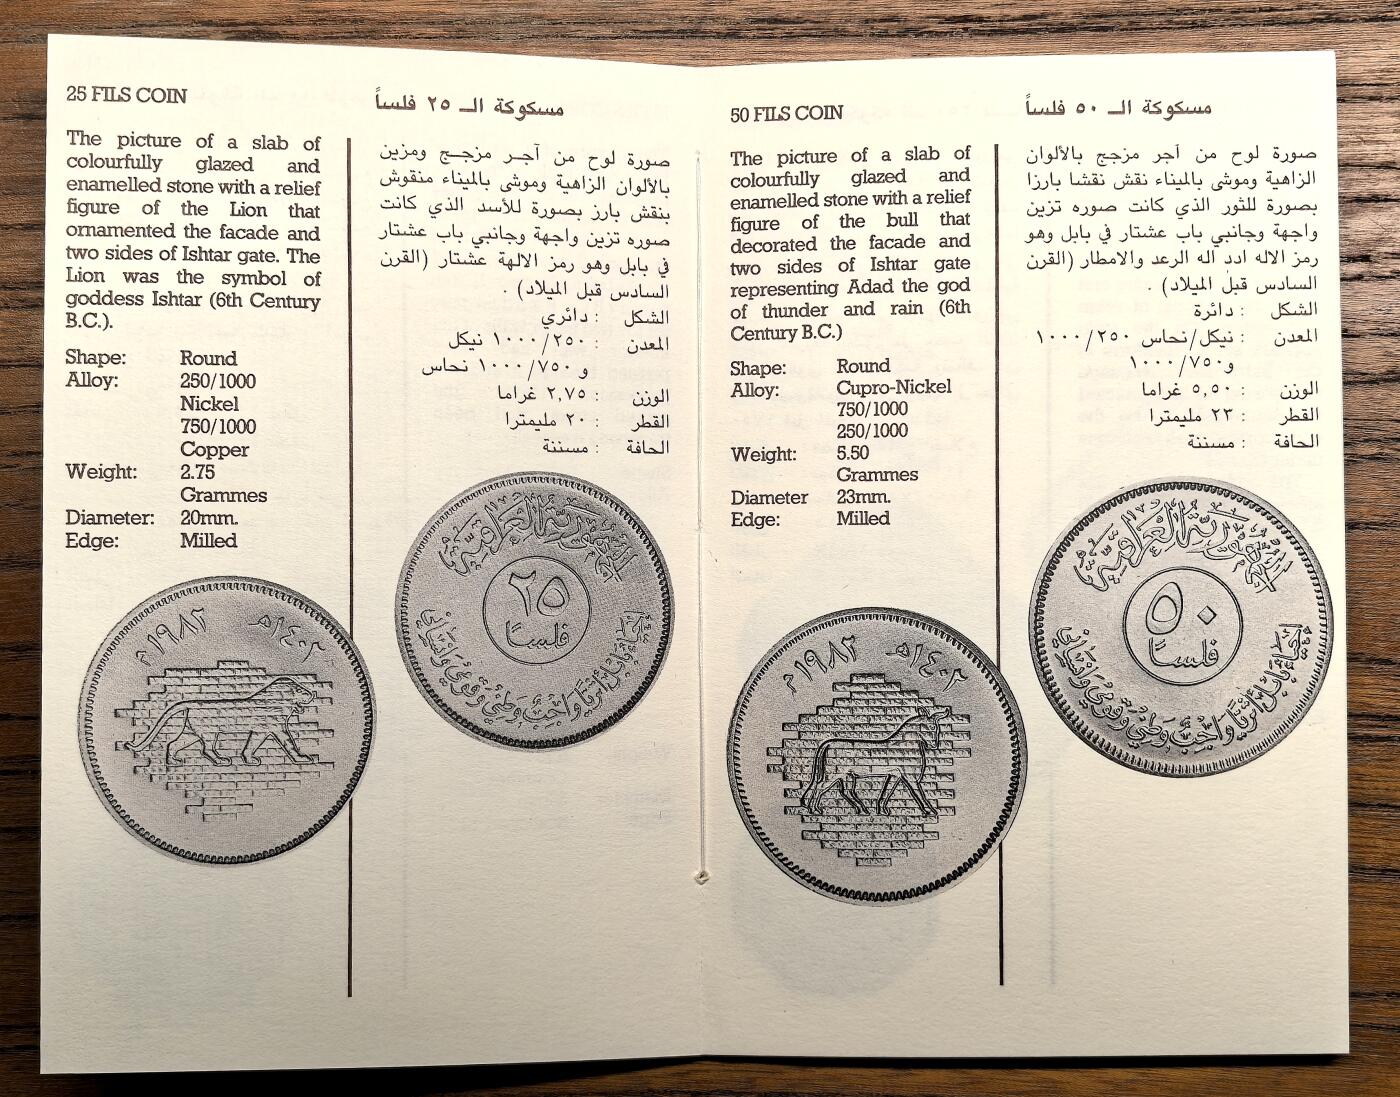 25 FILS COIN
The picture of a slab of
colourfully glazed and
enamelled stone with a relief
figure of the Lion that
ornamented the facade and
two sides of Ishtar gate. The
Lion was the symbol of
goddess Ishtar (6th Century
B.C.).
Shape: Round
Alloy: 250/1000
Nickel
750/1000
Copper
Weight: 2.75
Grammes
Diameter: 20mm.
Edge: Milled
١٩٨٢م ١٤٠٢هـ
مسكوكة الـ ٢٥ فلساً
صورة لوح من آجر مزجج ومزين
بالألوان الزاهية وموشى بالميناء منقوش
بنقش بارز بصورة للأسد الذي كانت
صوره تزين واجهة وجانبي باب عشتار
في بابل وهو رمز الالهة عشتار (القرن
السادس قبل الميلاد) .
الشكل : دائري
المعدن : ١٠٠٠/٢٥٠ نيكل
و ١٠٠٠/٧٥٠ نحاس
الوزن : ٢,٧٥ غراما
القطر : ٢٠ مليمترا
الحافة : مسننة
الجمهورية العراقية
٢٥
فلسًا
50 FILS COIN
The picture of a slab of
colourfully glazed and
enamelled stone with a relief
figure of the bull that
decorated the facade and
two sides of Ishtar gate
representing Adad the god
of thunder and rain (6th
Century B.C.)
Shape: Round
Alloy: Cupro-Nickel
750/1000
250/1000
Weight: 5.50
Grammes
Diameter 23mm.
Edge: Milled
١٩٨٢م ١٤٠٢هـ
مسكوكة الـ ٥٠ فلساً
صورة لوح من آجر مزجج بالألوان
الزاهية وموشى بالميناء نقش نقشا بارزا
بصورة للثور الذي كانت صوره تزين
واجهة وجانبي باب عشتار في بابل وهو
رمز الاله ادد اله الرعد والامطار (القرن
السادس قبل الميلاد) .
الشكل : دائرة
المعدن : نيكل/نحاس ١٠٠٠/٢٥٠
و١٠٠٠/٧٥٠
الوزن : ٥,٥٠ غراما
القطر : ٢٣ مليمترا
الحافة : مسننة
الجمهورية العراقية
٥٠
فلسًا